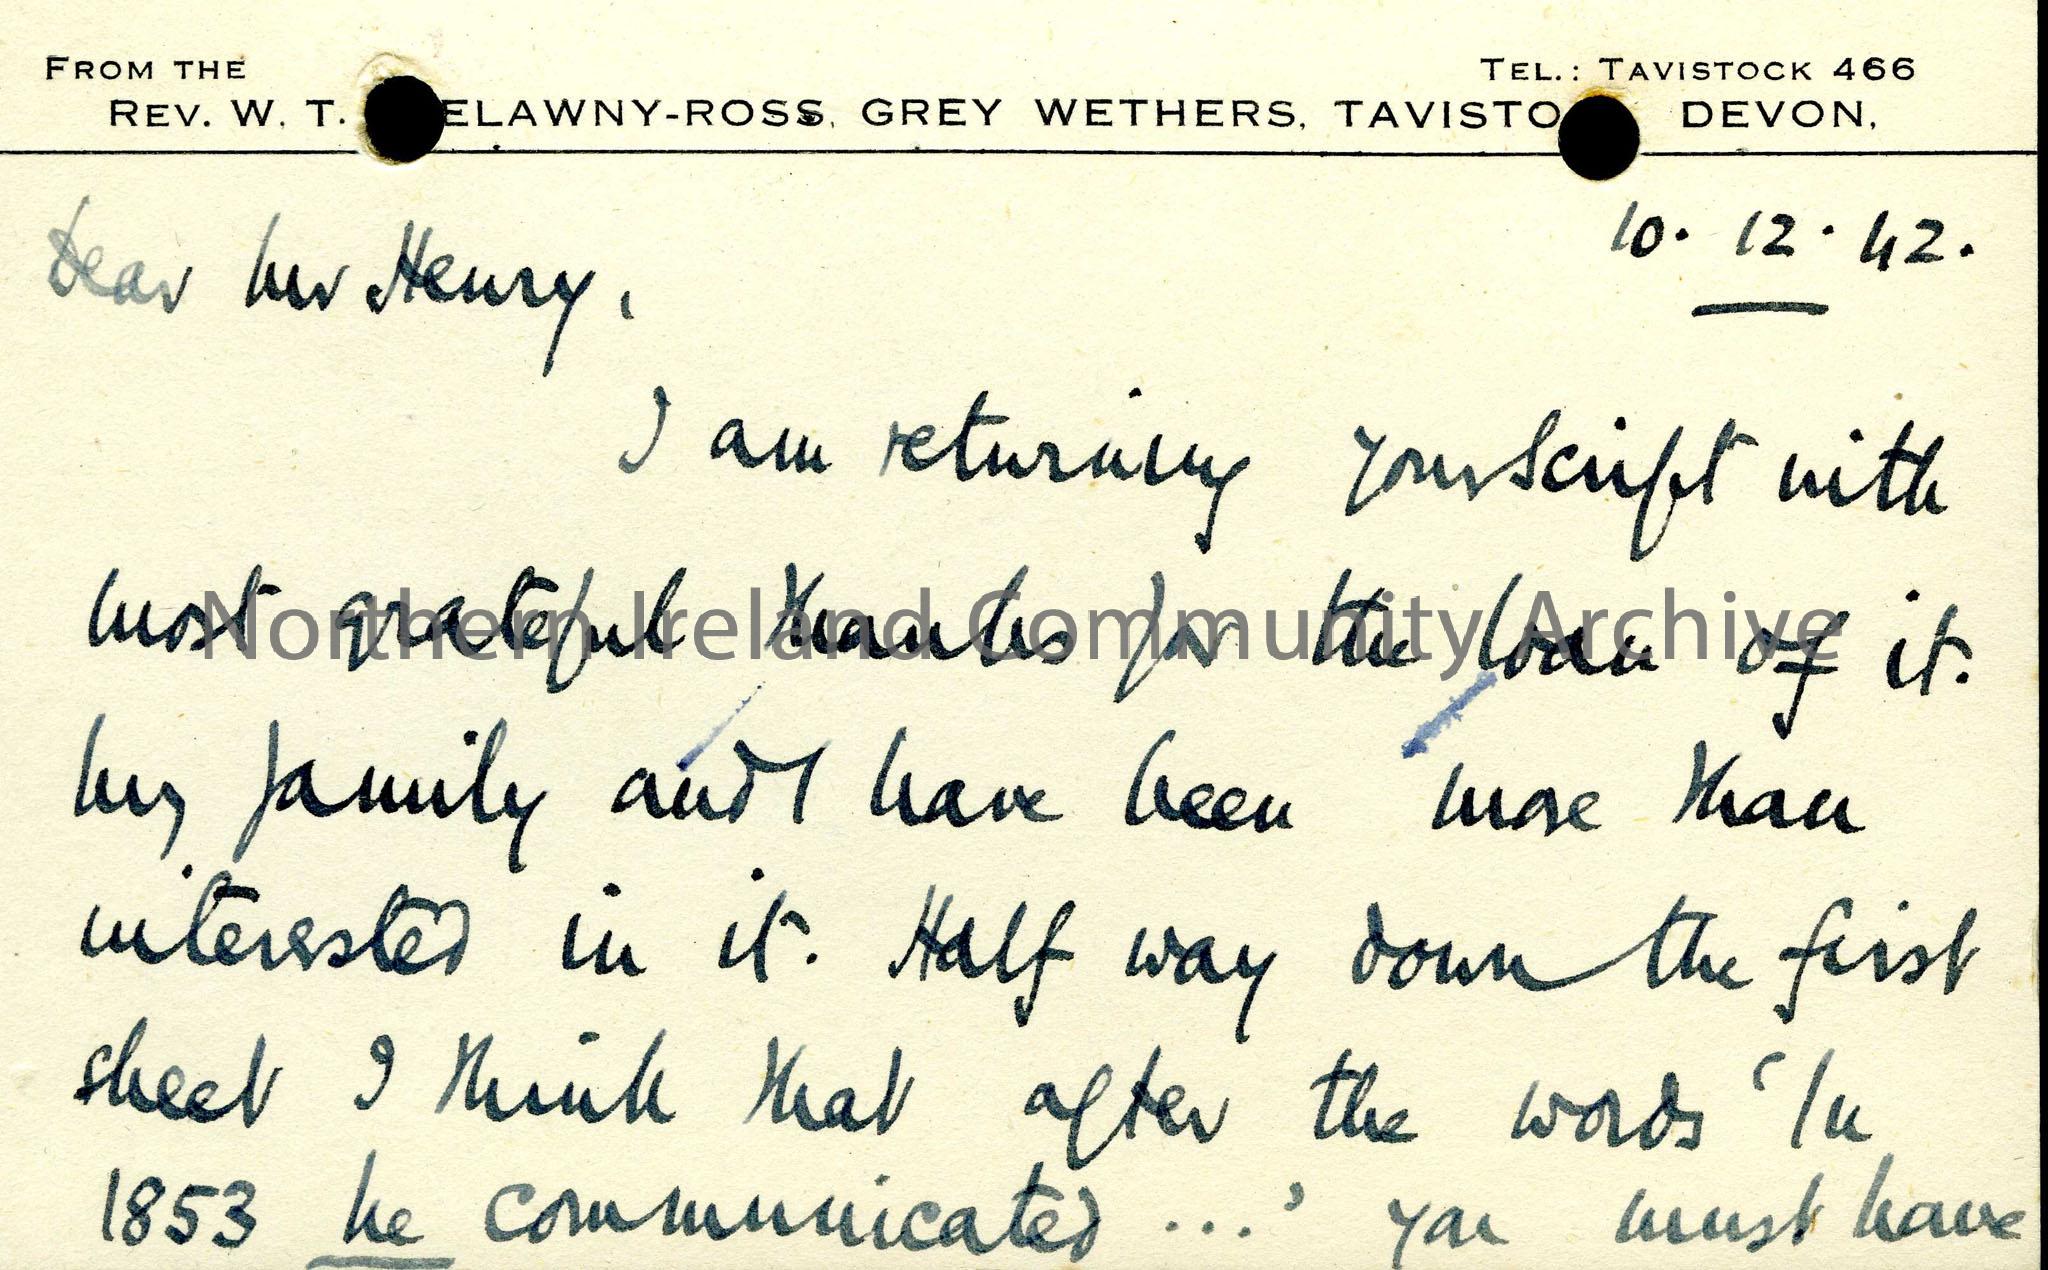 FROM THE
TEL.: TAVISTOCK 466
REV. W. T. ELAWNY-ROSS, GREY WETHERS, TAVISTO DEVON,
10. 12. 42.
Dear Mr Henry,
I am returning your script with
most grateful thanks for the loan of it.
Northern Ireland Community Archive
My family and I have been more than
interested in it. Half way down the first
sheet I think that after the words 'In
1853 he communicated ...' you must have